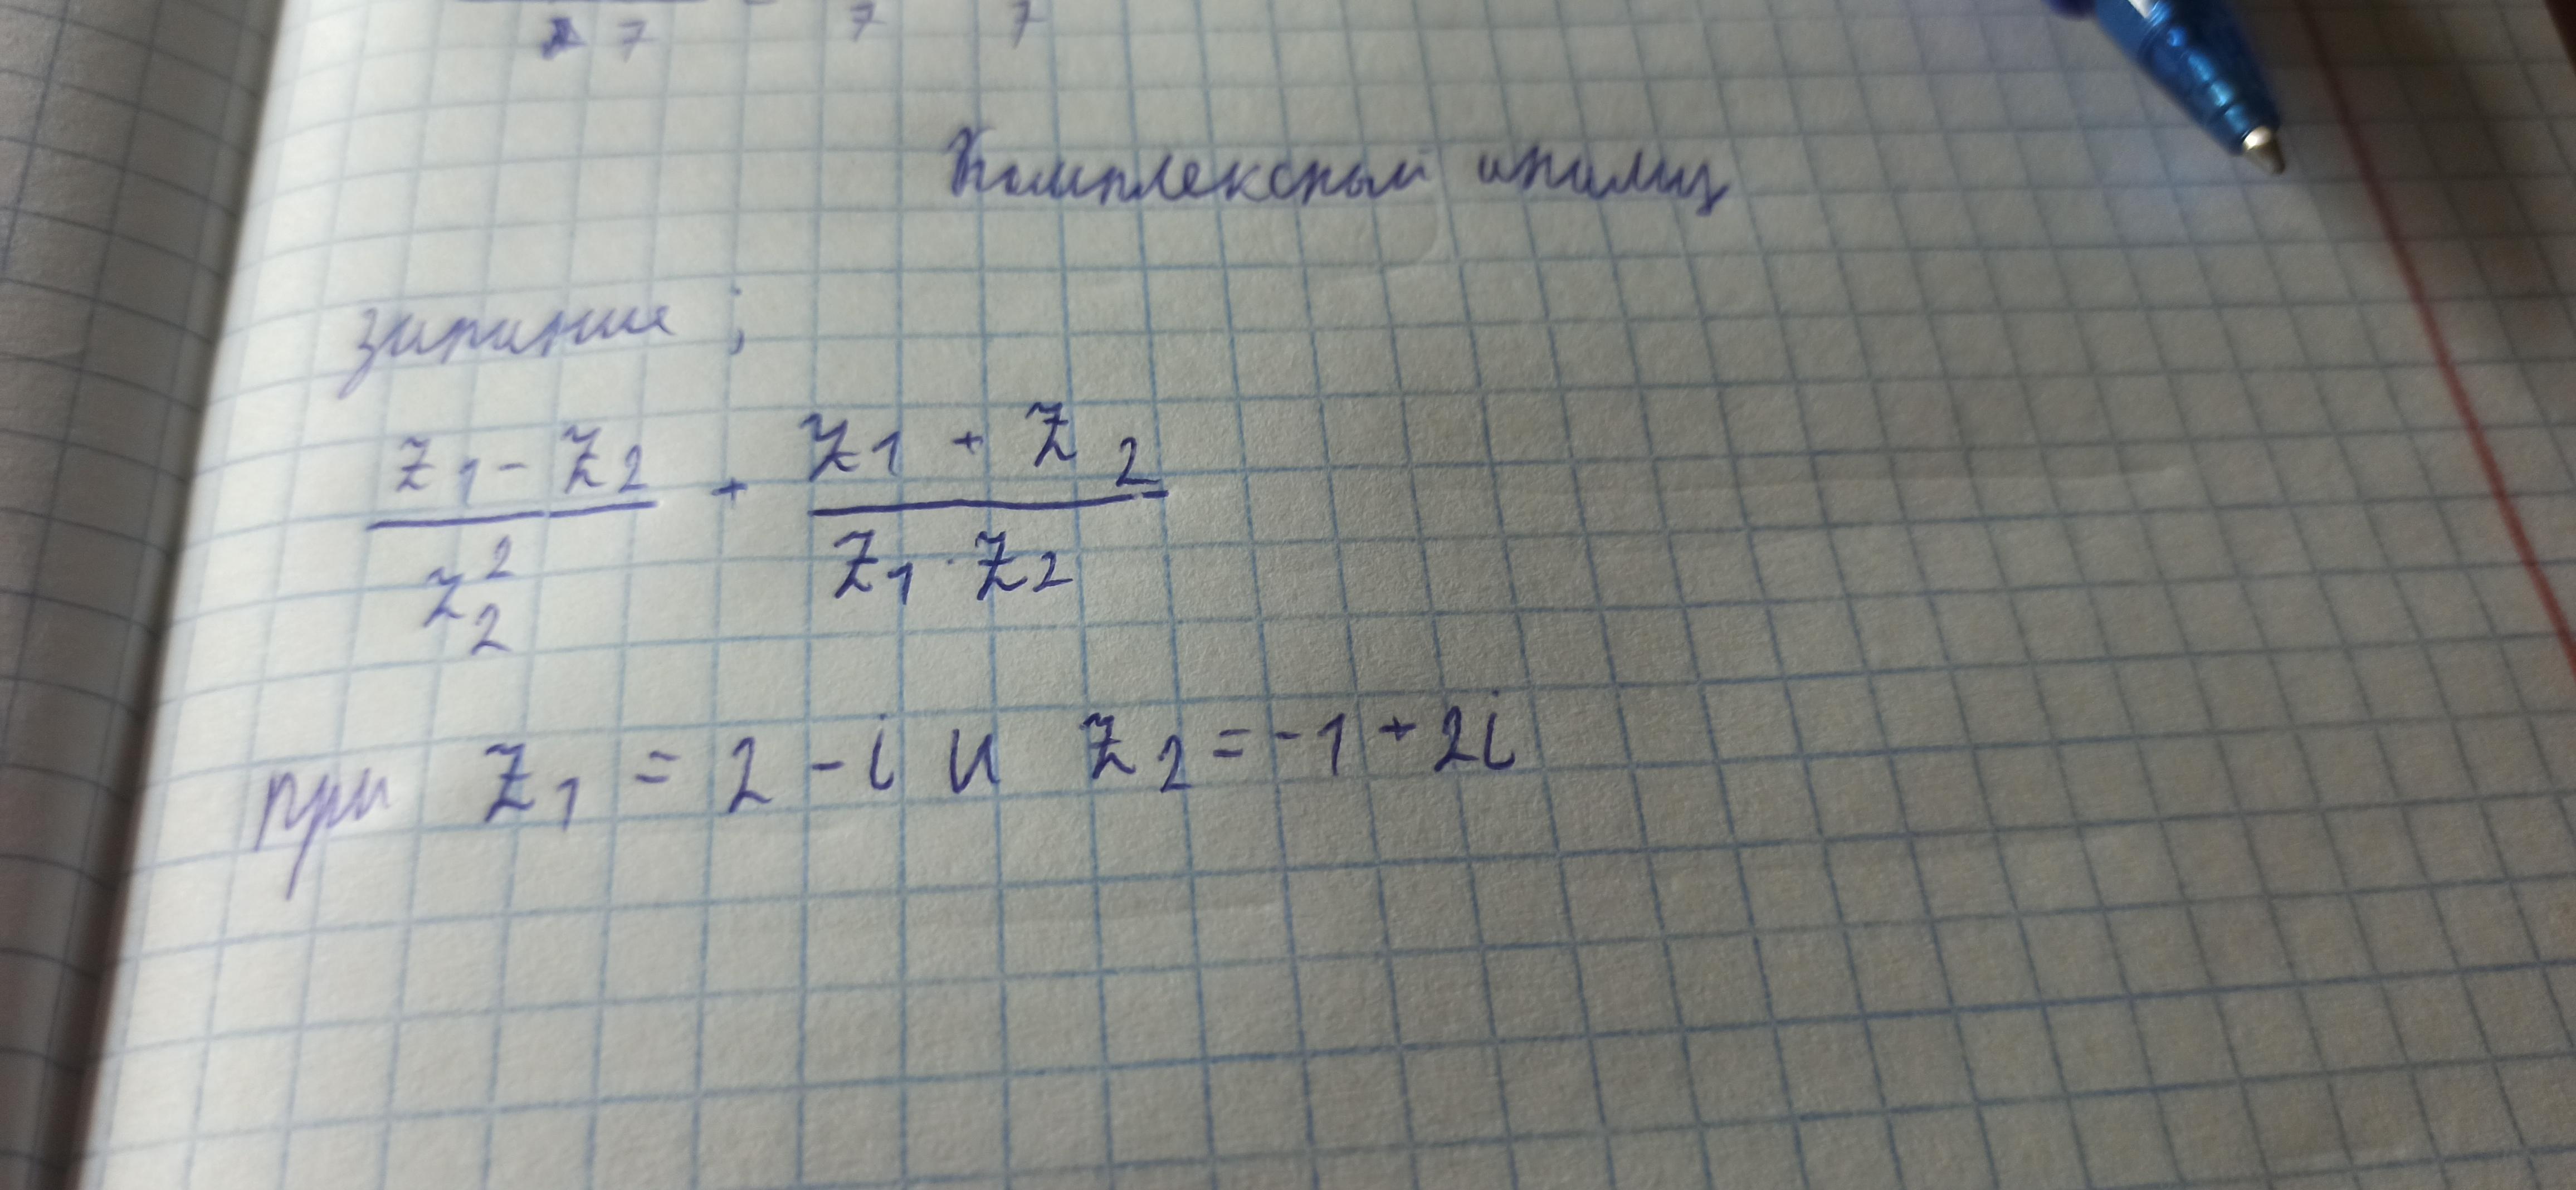 27 7 7
Комплексный анализ
задание;
z₁ - z₂ / z₂² + z₁ + z₂ / z₁ · z₂
при z₁ = 2 - i и z₂ = -1 + 2i